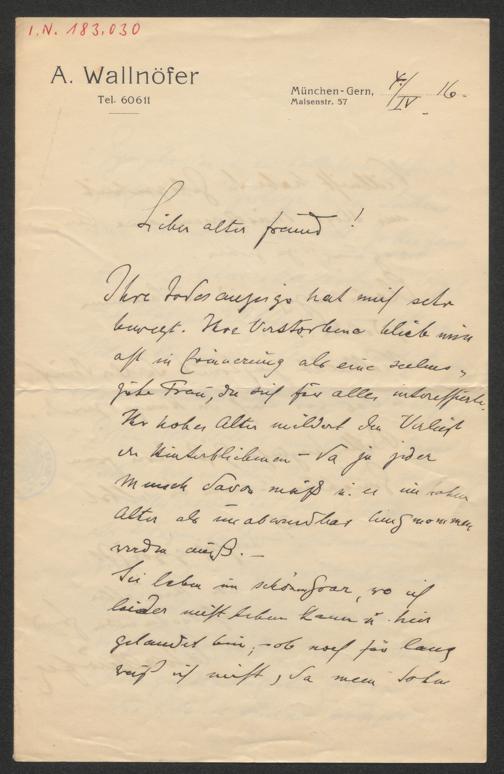 I.N. 183.030
A. Wallnöfer
Tel. 60611
München-Gern, 4./IV 16.
Malsenstr. 57
Lieber alter Freund!
Ihre Todesanzeige hat mich sehr
bewegt. Ihre Verstorbene blieb mir
oft in Erinnerung als eine seelens-
gute Frau, die sich für alles interessierte.
Ihr hohes Alter mildert den Verlust
der Hinterbliebenen – da ja jeder
Mensch davon muß u. es im hohen
Alter als unabwendbar hingenommen
werden muß. –
Sie leben im schönen Graz, wo ich
leider nicht leben kann u. hier
gelandet bin, – ob noch für lang
weiß ich nicht, da mein Sohn